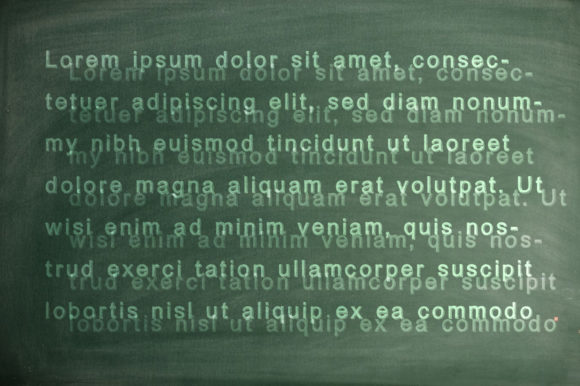 Lorem ipsum dolor sit amet, consec-
tetuer adipiscing elit, sed diam nonum-
my nibh euismod tincidunt ut laoreet
dolore magna aliquam erat volutpat. Ut
wisi enim ad minim veniam, quis nos-
trud exerci tation ullamcorper suscipit
lobortis nisl ut aliquip ex ea commodo